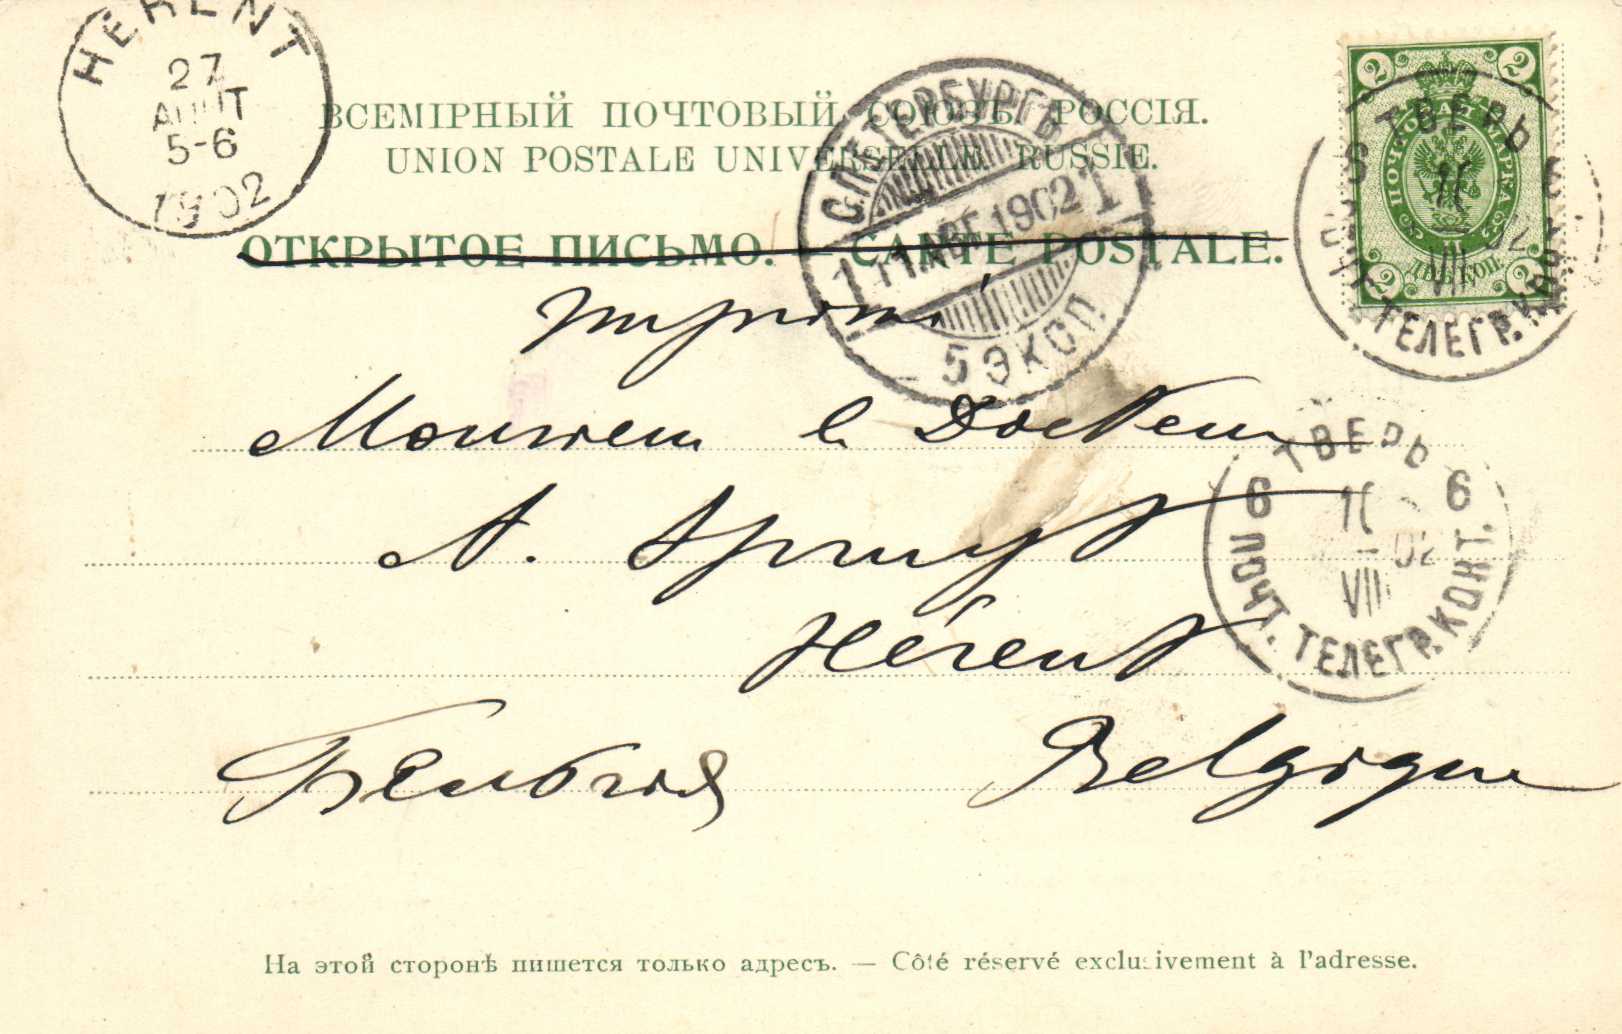 HÉRENT
27
AOUT
5-6
1902
ВСЕМІРНЫЙ ПОЧТОВЫЙ СОЮЗЪ. РОССІЯ.
UNION POSTALE UNIVERSELLE. RUSSIE.
ОТКРЫТОЕ ПИСЬМО. — CARTE POSTALE.
С.ПЕТЕРБУРГЪ
1 11 АВГ. 1902 1
5 ЭКСП
2 2
ПОЧТОВАЯ МАРКА
2 ДВѢ КОП. 2
ТВЕРЬ
6 6
VIII 02
ПОЧТ. ТЕЛЕГР. КОНТ.
imprimé
Monsieur le Docteur
A. Spruyt
Hérent
Бельгія Belgique
ТВЕРЬ
6 10 6
02
VIII
ПОЧТ. ТЕЛЕГР. КОНТ.
На этой сторонѣ пишется только адресъ. — Côté réservé exclusivement à l'adresse.